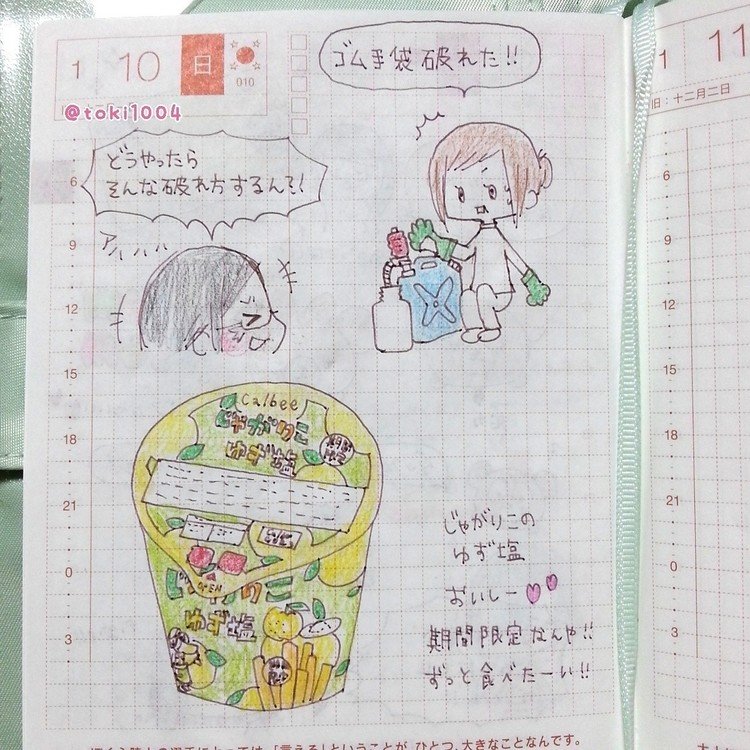 1 10 日
010
@toki1004
ゴム手袋破れた!!
どうやったら
そんな破れ方するんそ!
アハハハ
6
9
12
15
18
21
0
3
Calbee
じゃがりこ
ゆず塩
期間限定
OPEN
じゃがりこ
ゆず塩
じゃがりこの
ゆず塩
おいしー
期間限定なんや!!
ずっと食べたーい!!
「言える」ということが、ひとつ、大きなことなんです。
1 11
旧:十二月二日
6
9
12
15
18
21
0
3